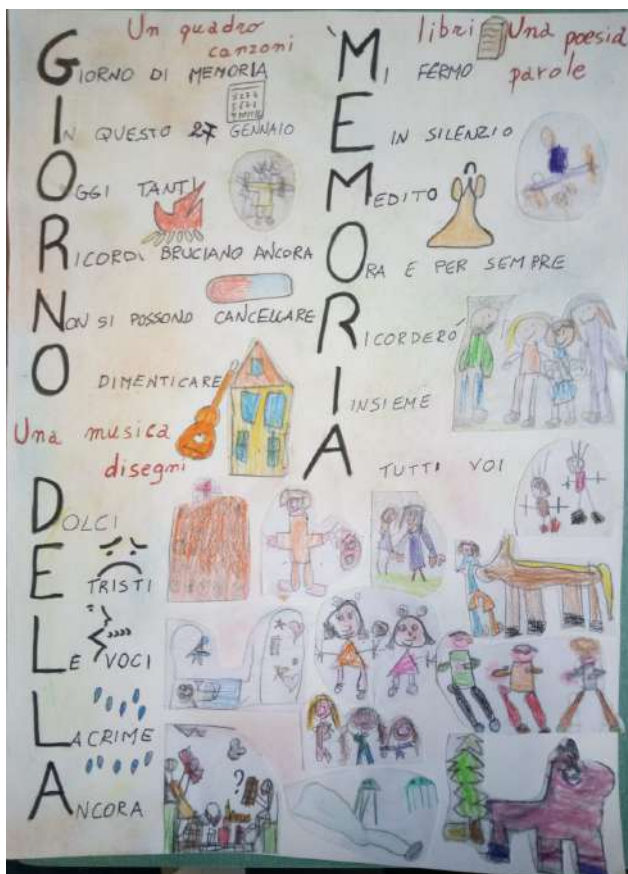 Un quadro
canzoni
GIORNO DI MEMORIA
IN QUESTO 27 GENNAIO
OGGI TANTI
RICORDI BRUCIANO ANCORA
NON SI POSSONO CANCELLARE
O DIMENTICARE
Una musica
disegni
DOLCI
E TRISTI
LE VOCI
LACRIME
ANCORA
libri Una poesia
parole
MI FERMO
E IN SILENZIO
MEDITO
ORA E PER SEMPRE
RICORDERÓ
INSIEME
A TUTTI VOI
?